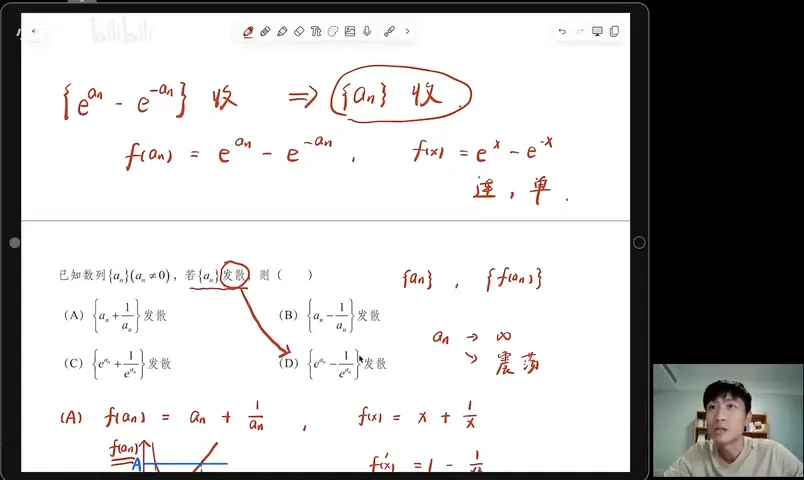 bilibili
{e^{a_n} - e^{-a_n}} 收 ⇒ {a_n} 收.
f(a_n) = e^{a_n} - e^{-a_n}, f(x) = e^x - e^{-x}
连, 单.
已知数列{a_n}(a_n≠0), 若{a_n}发散, 则( )
{a_n}, {f(a_n)}
(A) {a_n + 1/a_n}发散 (B) {a_n - 1/a_n}发散
a_n → ∞
↘ 震荡
(C) {e^{a_n} + 1/e^{a_n}}发散 (D) {e^{a_n} - 1/e^{a_n}}发散
(A) f(a_n) = a_n + 1/a_n, f(x) = x + 1/x
f(a_n)
A
f'(x) = 1 - 1/x²